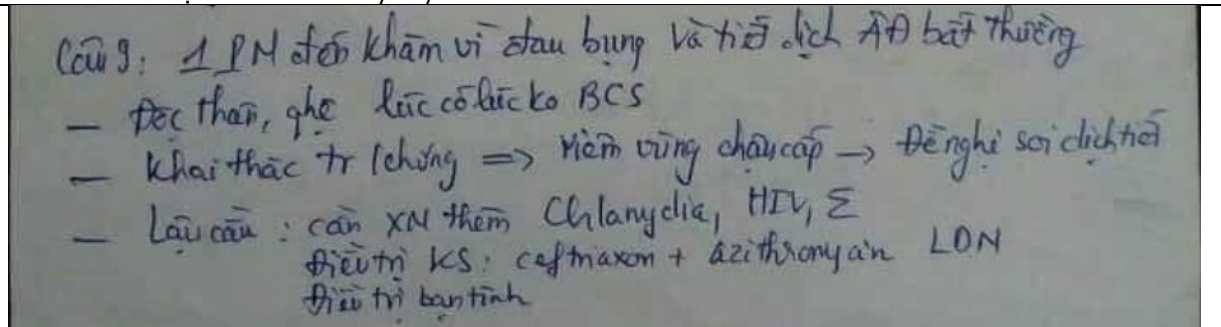 Câu 9: 1 PN đến khám vì đau bụng và tiết dịch ÂĐ bất thường
- Độc thân, qhệ lúc có lúc ko BCS
- Khai thác tr/chứng => viêm vùng chậu cấp -> Đề nghị soi dịch tiết
- Lậu cầu : cần XN thêm Chlamydia, HIV, Σ
Điều trị KS: ceftriaxon + azithromycin LDN
Điều trị bạn tình